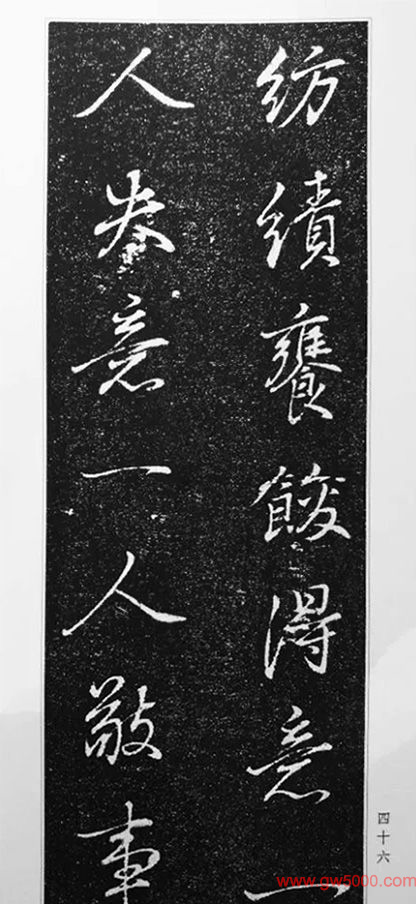 紡績饔餕得意一
人失意一人敬事
四十六
www.gw5000.com